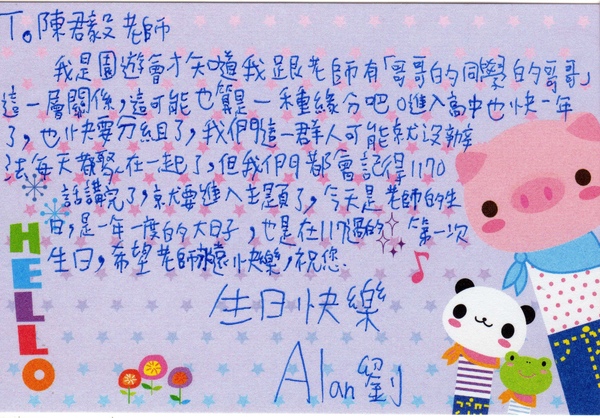 To 陳君毅老師
我是園遊會才知道我跟老師有「哥哥的同學的哥哥」
這一層關係,這可能也算是一種緣分吧。進入高中也快一年
了,也快要分組了,我們這一群人可能就沒辦
法每天都聚在一起了,但我們都會記得1170
話講完了,就要進入主題了,今天是老師的生
日,是一年一度的大日子,也是在117過的第一次
生日,希望老師永遠快樂,祝您:
生日快樂
Alan 劉
HELLO